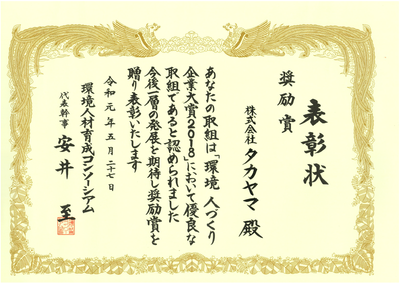 表彰状
奨励賞
株式会社タカヤマ 殿
あなたの取組は「環境 人づくり
企業大賞2018」において優良な
取組であると認められました
今後一層の発展を期待し奨励賞を
贈り表彰いたします
令和元年五月二十七日
環境人材育成コンソーシアム
代表幹事 安井 至